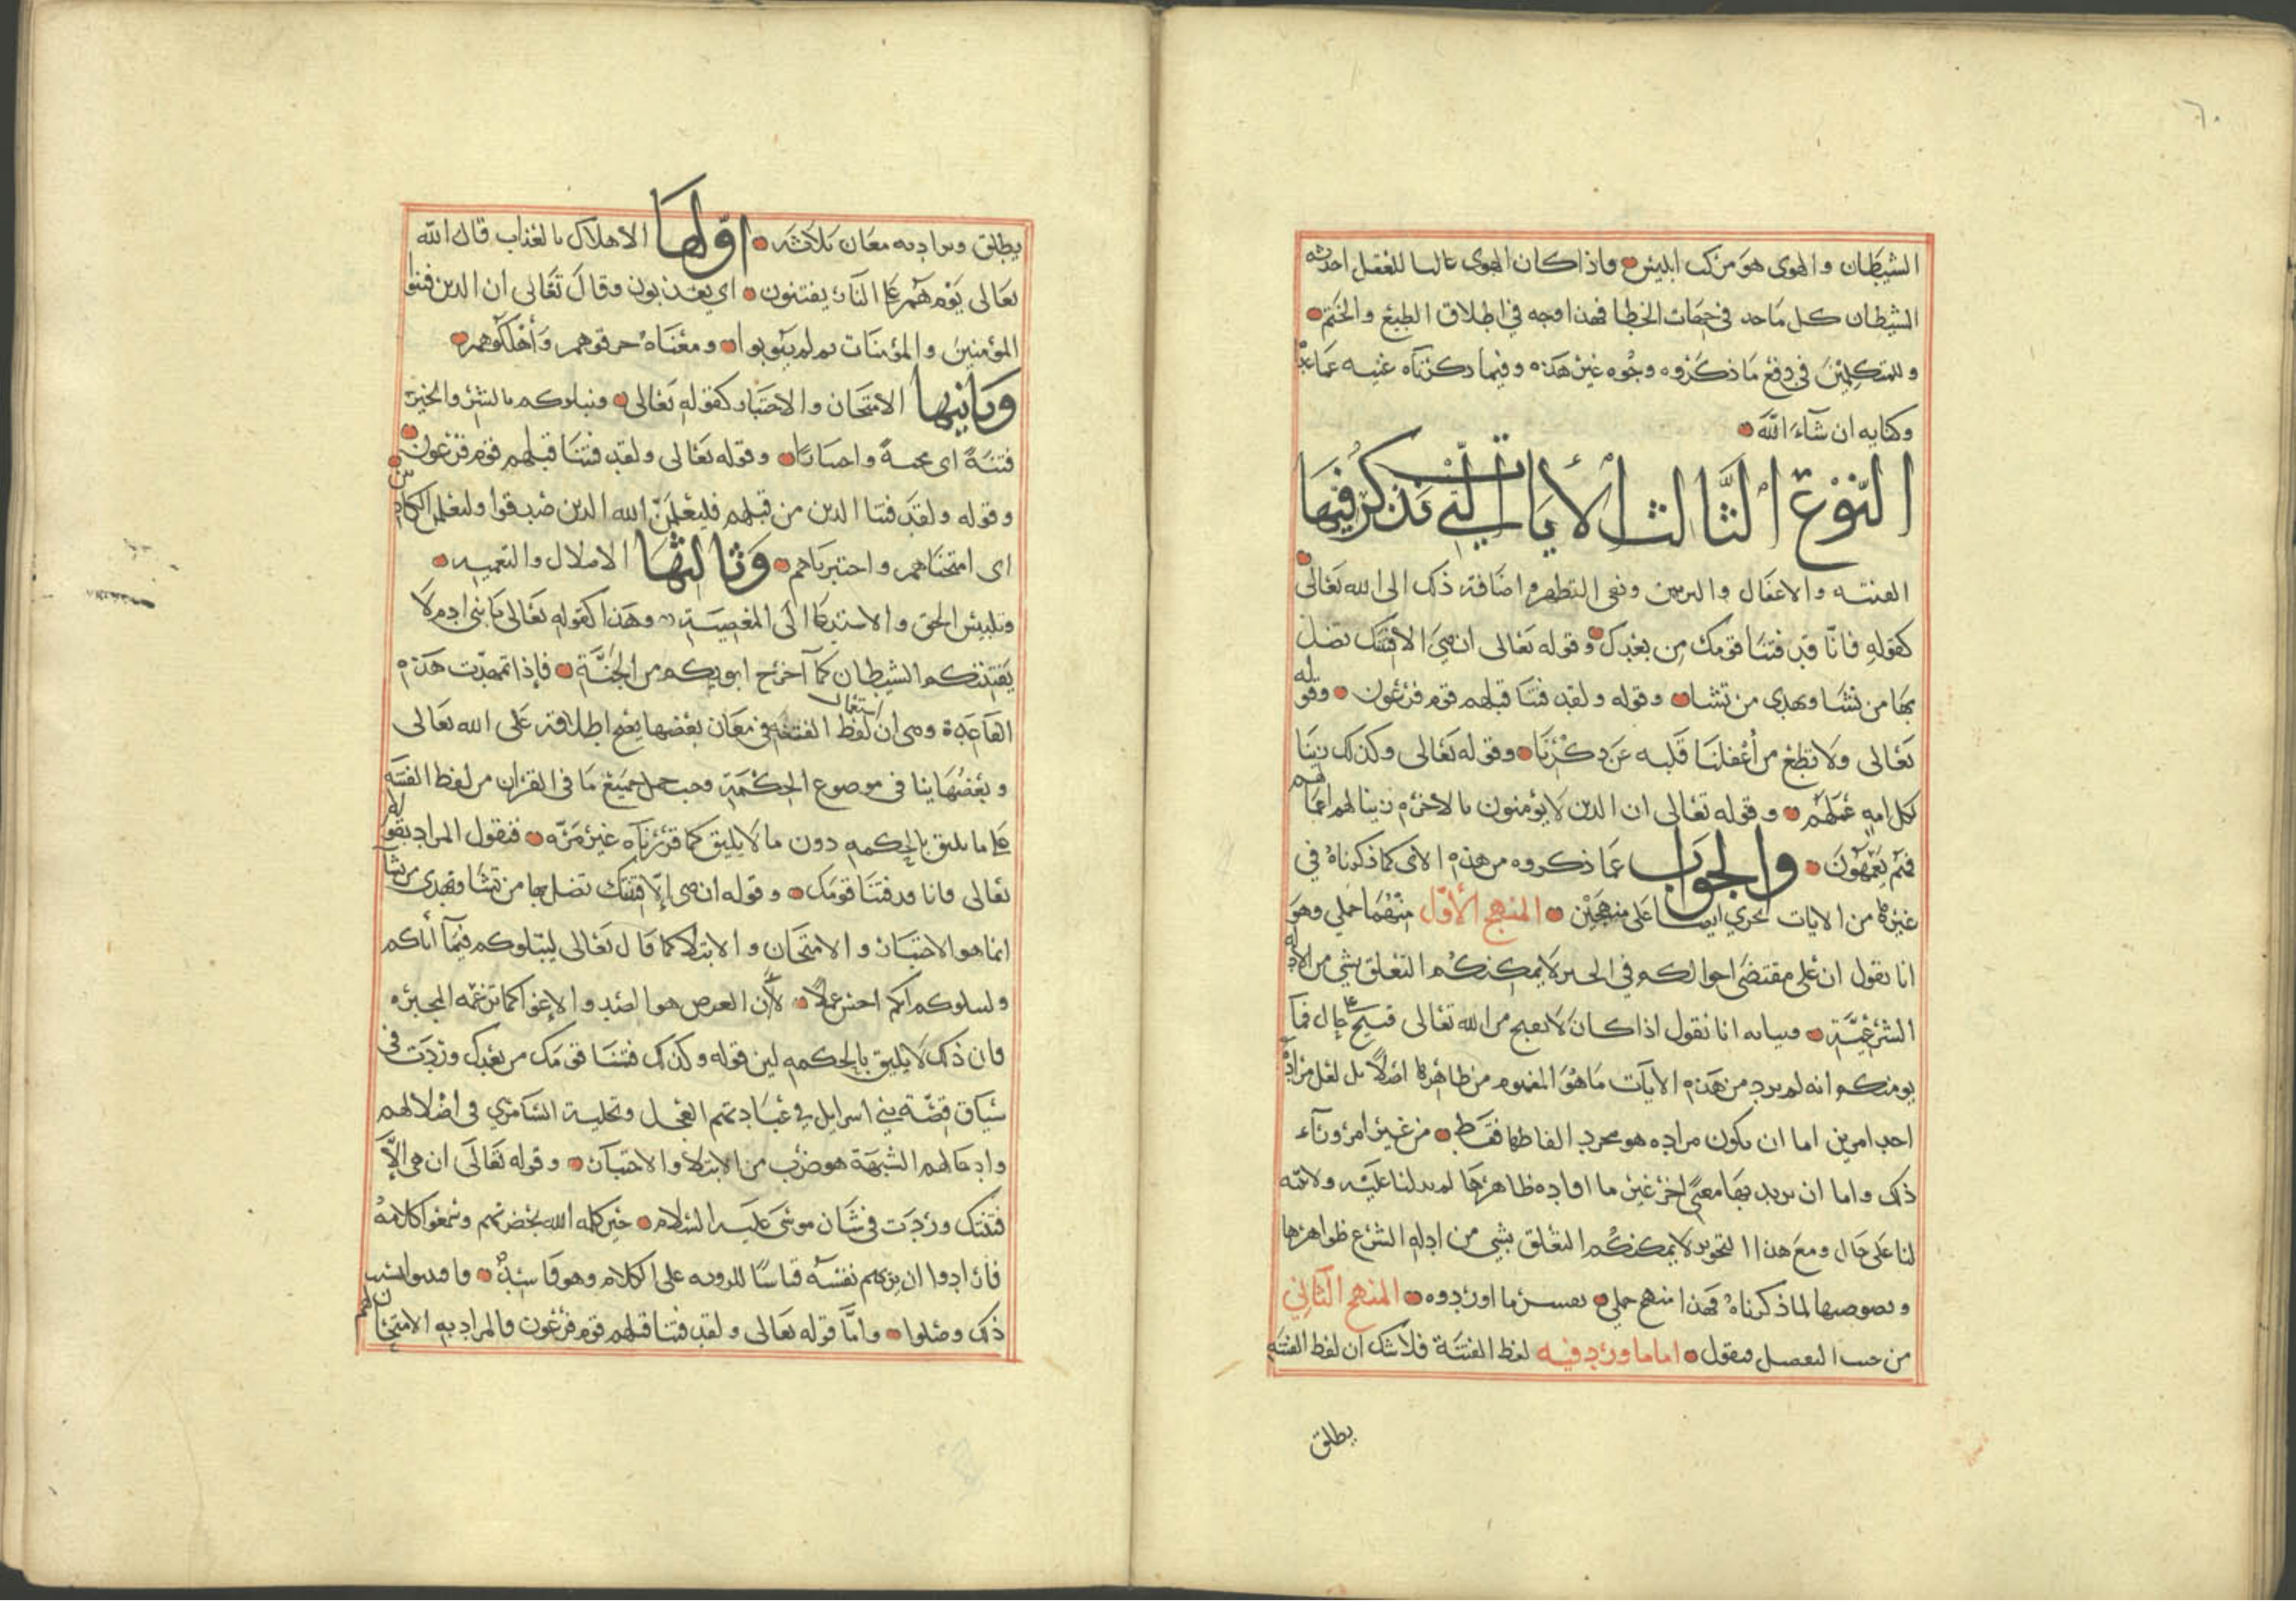 ٦٠
الشيطان والهوى هو مركب ابليس واذا كان الهوى غالبا للعقل احدثه
الشيطان كل ماخذ في جهات الخطا فهذا اوجه في اطلاق الطبع والختم
وللمتكلمين في دفع ما ذكروه وجوه غير هذه وفيما ذكرناه غنيه عما عداه
وكفايه ان شآء الله
النوع الثالث الأيات التي نذكر فيها
الفتنه والاغفال والتزيين ونفى التطهر واضافة ذلك الى الله تعالى
كقوله فانا قد فتنا قومك من بعدك وقوله تعالى ان هي الا فتنتك تضل
بها من تشا وتهدى من تشا وقوله ولقد فتنا قبلهم قوم فرعون وقوله
تعالى ولا تطع من أغفلنا قلبه عن ذكرنا وقوله تعالى وكذلك زينا
لكل امه عملهم وقوله تعالى ان الذين لا يؤمنون بالاخرة زينا لهم اعمالهم
فهم يعمهون والجواب عما ذكروه من هذه الاى كما ذكرناه في
غيرها من الايات يجري ايضا على منهجين المنهج الأول منهما جملي وهو
انا نقول ان على مقتضى احوالكم في الجبر لا يمكنكم التعلق بشي من الادله
الشرعية وبيانه انا نقول اذا كان لا يقبح من الله تعالى قبيح على حال فما
يومنكم انه لم يرد من هذه الايات ما هو المفهوم من ظاهرها اصلا بل لعل مراده
احد امرين اما ان يكون مراده هو مجرد الفاظها فقط من غير امر ورآء
ذلك واما ان يريد بها معنى اخر غير ما افاده ظاهرها لم يدلنا عليه ولا نبه
لنا على حال ومع هذا التجويز لا يمكنكم التعلق بشي من ادله الشرع ظواهرها
ونصوصها لما ذكرناه فهذا منهج جملي يفسر ما اوردوه المنهج الثاني
من حيث التفصيل فنقول اما ما ورد فيه لفظ الفتنة فلا شك ان لفظ الفتنه
يطلق
يطلق ويراد به معان ثلاثه اولها الاهلاك بالعذاب قال الله
تعالى يوم هم على النار يفتنون اي يعذبون وقال تعالى ان الذين فتنوا
المؤمنين والمؤمنات ثم لم يتوبوا ومعناه حرقوهم وأهلكوهم
وثانيها الامتحان والاختبار كقوله تعالى ونبلوكم بالشر والخير
فتنة اى محنة واختبارا وقوله تعالى ولقد فتنا قبلهم قوم فرعون
وقوله ولقد فتنا الذين من قبلهم فليعلمن الله الذين صدقوا وليعلمن الكاذبين
اى امتحناهم واختبرناهم وثالثها الاضلال والتعميه
وتلبيس الحق والاستدعا الى المعصية وهذا كقوله تعالى يا بنى ادم لا
يفتننكم الشيطان كما آخرج ابويكم من الجنة فإذا تمهدت هذه
القاعدة وهى ان استعمال لفظ الفتنه في معان بعضها يصح اطلاقه على الله تعالى
وبعضها ينافى موضوع الحكمة وجب حمل جميع ما في القران من لفظ الفتنه
على ما يليق بالحكمه دون ما لا يليق كما قررناه غير مره فنقول المراد بقوله
تعالى فانا قد فتنا قومك وقوله ان هى إلا فتنتك تضل بها من تشا وتهدى من تشا
انما هو الاختبار والامتحان والابتلا كما قال تعالى ليبلوكم فيما أتاكم
وليبلوكم ايكم احسن عملا لأن الغرض هو الصد والإغوا كما تزعمه المجبره
فان ذلك لا يليق بالحكمه لين قوله وكذلك فتنا قومك من بعدك وردت في
سياق قصة بني اسرايل في عبادتهم العجل وتخلية السامري في اضلالهم
وادخالهم الشبهة هو ضرب من الابتلا والاختبار وقوله تعالى ان هى الا
فتنتك وردت في شان موسى عليه السلام حين كلمه الله بحضرتهم وسمعوا كلامه
فارادوا ان يريهم نفسه قياسا للرويه على الكلام وهو فاسد وافتتنوا بسبب
ذلك وضلوا وامّا قوله تعالى ولقد فتنا قبلهم قوم فرعون فالمراد به الامتحان لهم